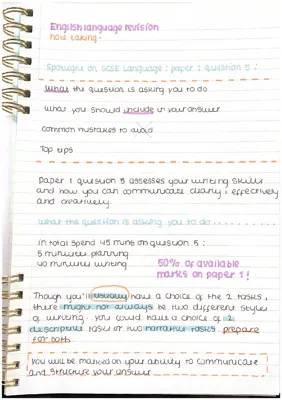 English language revision
note taking.
Spotlight on GCSE Language : paper 1 question 5 :
What the question is asking you to do
What you should include in your answer
common mistakes to avoid
Top tips
Paper 1 question 5 assesses your writing skills
and how you can communicate clearly, effectively
and creatively.
what the question is asking you to do
in total spend 45 mins on question 5 :
5 minutes planning
40 minutes writing
50% of available
marks on paper 1!
Though you'll usually have a choice of the 2 tasks,
there might not always be two different styles
of writing. you could have a choice of 2
descriptive tasks or two narrative tasks. prepare
for both
You will be marked on your ability to communicate
and structure your answer